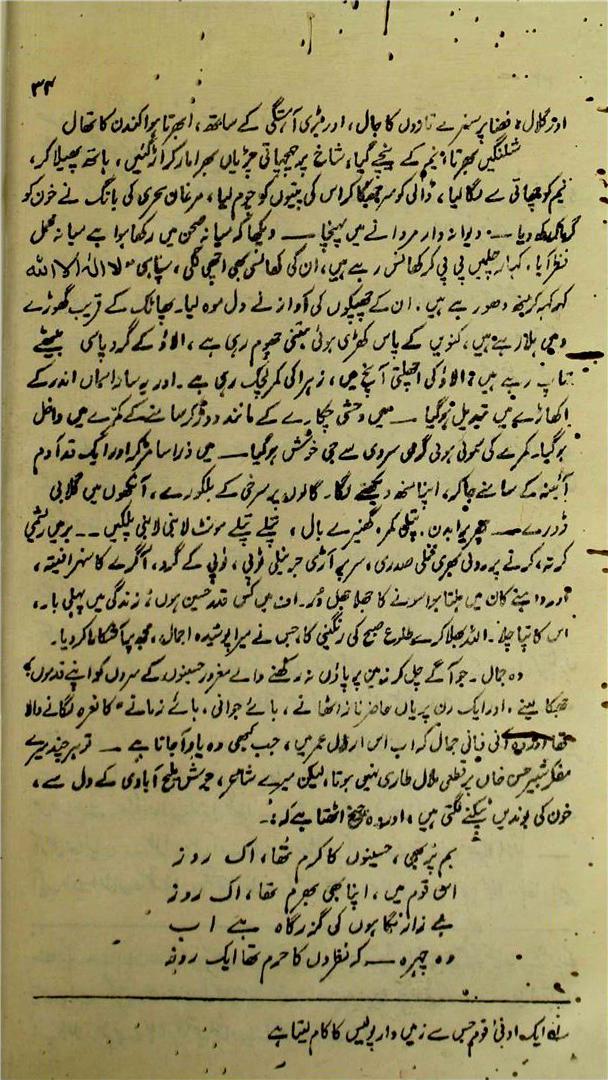 ۳۴
اور گلال، فضا پر سنہرے تاروں کا جال، اور بڑی آہستگی کے ساتھ، ابھرتا ہوا کندن کا تھال
شلنگیں بھرتا، نیم کے نیچے گیا، شاخ پر چہچہاتی چڑیاں بھرا مار کر اڑ گئیں، ہاتھ پھیلا کر،
نیم کو چھاتی سے لگا لیا، ڈالی کو سر جھکا کر اس کی پتیوں کو چوم لیا، مرغانِ سحری کی بانگ نے خون کو
گرما کے رکھ دیا — دیوانہ وار مردانے میں پہنچا — دیکھا کہ میانہ صحن میں رکھا ہوا ہے میانہ محل
نظر آیا. کہار چلمیں پی پی کر کھانس رہے ہیں، ان کی کھانسی بھی اچھی لگی، سپاہی "لا الہٰ الا اللہ
کہہ کہہ کر منھ دھو رہے ہیں. ان کے چھپکوں کی آواز نے دل موہ لیا. پھاٹک کے قریب گھوڑے
دمیں ہلا رہے ہیں، کنویں کے پاس کھڑی ہوئی ہتھنی جھوم رہی ہے، الاؤ کے گرد پاسی بیٹھے
تاپ رہے ہیں، الاؤ کی اچھلتی آنچ میں، زہرا کی کمر لچک رہی ہے. اور یہ سارا سماں اندر کے
اکھاڑے میں تبدیل ہو گیا — میں وحشی چکارے کے مانند دوڑ کر سامنے کے کمرے میں داخل
ہو گیا. کمرے کی سموئی ہوئی گرمی سردی سے جی خوش ہو گیا — میں ذرا سا مڑ کر اور ایک قد آدم
آئینہ کے سامنے جا کر، اپنا منھ دیکھنے لگا. گالوں پر سرخی کے ہلکورے، آنکھوں میں گلابی
ڈورے — چھریرا بدن. پتلی کمر. گھنیرے بال، پتلے پتلے ہونٹ لانبی لانبی پلکیں -- بر میں ریشمی
کرتہ، کرتے پر روئی بھری مخملی صدری، سر پر آڑی جرنیلی ٹوپی، ٹوپی کے گرد، آگرے کا سنہرا فیتہ،
اور داہنے کان میں ہلتا ہوا سونے کا جھلا جھل دُر. اف میں کس قدر حسین ہوں، زندگی میں پہلی بار،
اس کا پتا چلا. اللہ بھلا کرے طلوع صبح کی رنگینی کا جس نے میرا پوشیدہ اجمال، مجھ پر آشکارا کر دیا.
وہ جمال. جو آگے چل کر زمین پر پاؤں نہ رکھنے والے مغرور حسینوں کے سروں کو اپنے قدموں پر
جھکا لینے. اور ایک دن پریاں حاضر ناز اٹھانے، ہائے جوانی. ہائے زمانے" کا نعرہ لگانے والا
تھا اور وہی فانی جمال کہ اب اس ارذل عمر میں، جب کبھی وہ یاد آ جاتا ہے — تو ہر چند میرے
مفکر شبیر حسن خاں پر قطعی ملال طاری نہیں ہوتا، لیکن میرے شاعر، جوش ملیح آبادی کے دل سے،
خون کی بوندیں ٹپکنے لگتی ہیں، اور وہ چیخ اٹھتا ہے کہ:-
ہم پر بھی، حسینوں کا کرم تھا، اک روز
اس قوم میں، اپنا بھی بھرم تھا، اک روز
بے زار نگاہوں کی گزر گاہ ہے اب
وہ چہرہ — کہ نظروں کا حرم تھا ایک روز
ایک ادنیٰ قوم جس سے زمیں دار پولیس کا کام لیتا ہے